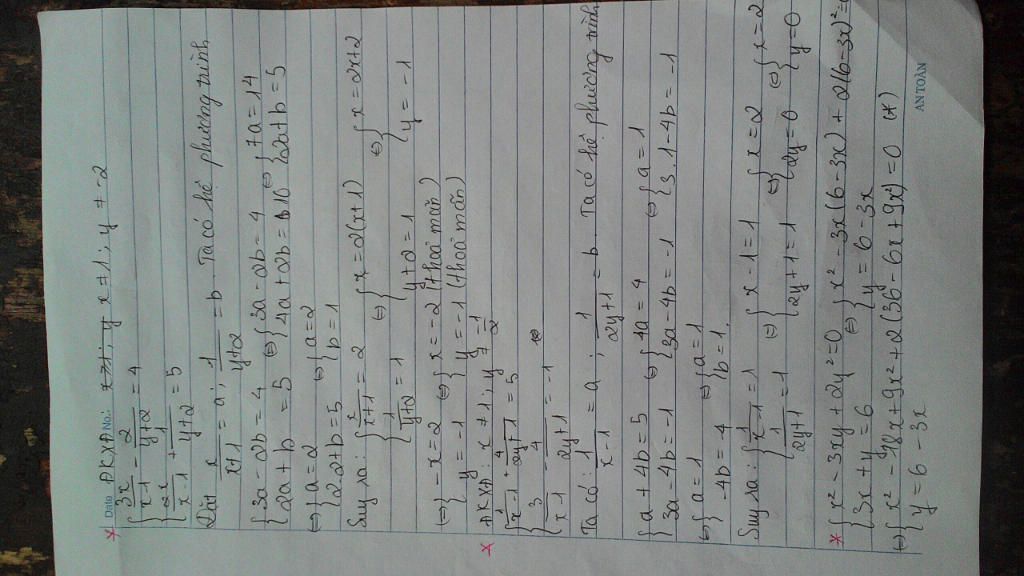 * Date ĐKXĐ No: x ≠ 1; y ≠ -2
{ 3x/(x-1) - 2/(y+2) = 4
{ 2x/(x-1) + 1/(y+2) = 5
Đặt x/(x+1) = a; 1/(y+2) = b. Ta có hệ phương trình
{ 3a - 2b = 4 ⇔ { 3a - 2b = 4 ⇔ { 7a = 14
{ 2a + b = 5 { 4a + 2b = 10 { 2a + b = 5
⇔ { a = 2 ⇔ { a = 2
{ 2.2 + b = 5 { b = 1
Suy ra: { x/(x+1) = 2 ⇔ { x = 2(x+1) ⇔ { x = 2x+2
{ 1/(y+2) = 1 { y+2 = 1 { y = -1
⇔ { -x = 2 ⇔ { x = -2 (thoả mãn)
{ y = -1 { y = -1 (thoả mãn)
* ĐKXĐ: x ≠ 1; y ≠ -1/2
{ 1/(x-1) + 4/(2y+1) = 5
{ 3/(x-1) - 4/(2y+1) = -1 ⇔
Ta có: 1/(x-1) = a; 1/(2y+1) = b. Ta có hệ phương trình
{ a + 4b = 5 ⇔ { 4a = 4 ⇔ { a = 1
{ 3a - 4b = -1 { 3a - 4b = -1 { 3.1 - 4b = -1
⇔ { a = 1 ⇔ { a = 1
{ -4b = -4 { b = 1.
Suy ra: { 1/(x-1) = 1 ⇔ { x - 1 = 1 ⇔ { x = 2 ⇔ { x = 2
{ 1/(2y+1) = 1 { 2y + 1 = 1 { 2y = 0 { y = 0
* { x² - 3xy + 2y² = 0 ⇔ { x² - 3x(6 - 3x) + 2(6 - 3x)² =
{ 3x + y = 6 { y = 6 - 3x
⇔ { x² - 18x + 9x² + 2(36 - 6x + 9x²) = 0 (*)
{ y = 6 - 3x
AN TOÀN